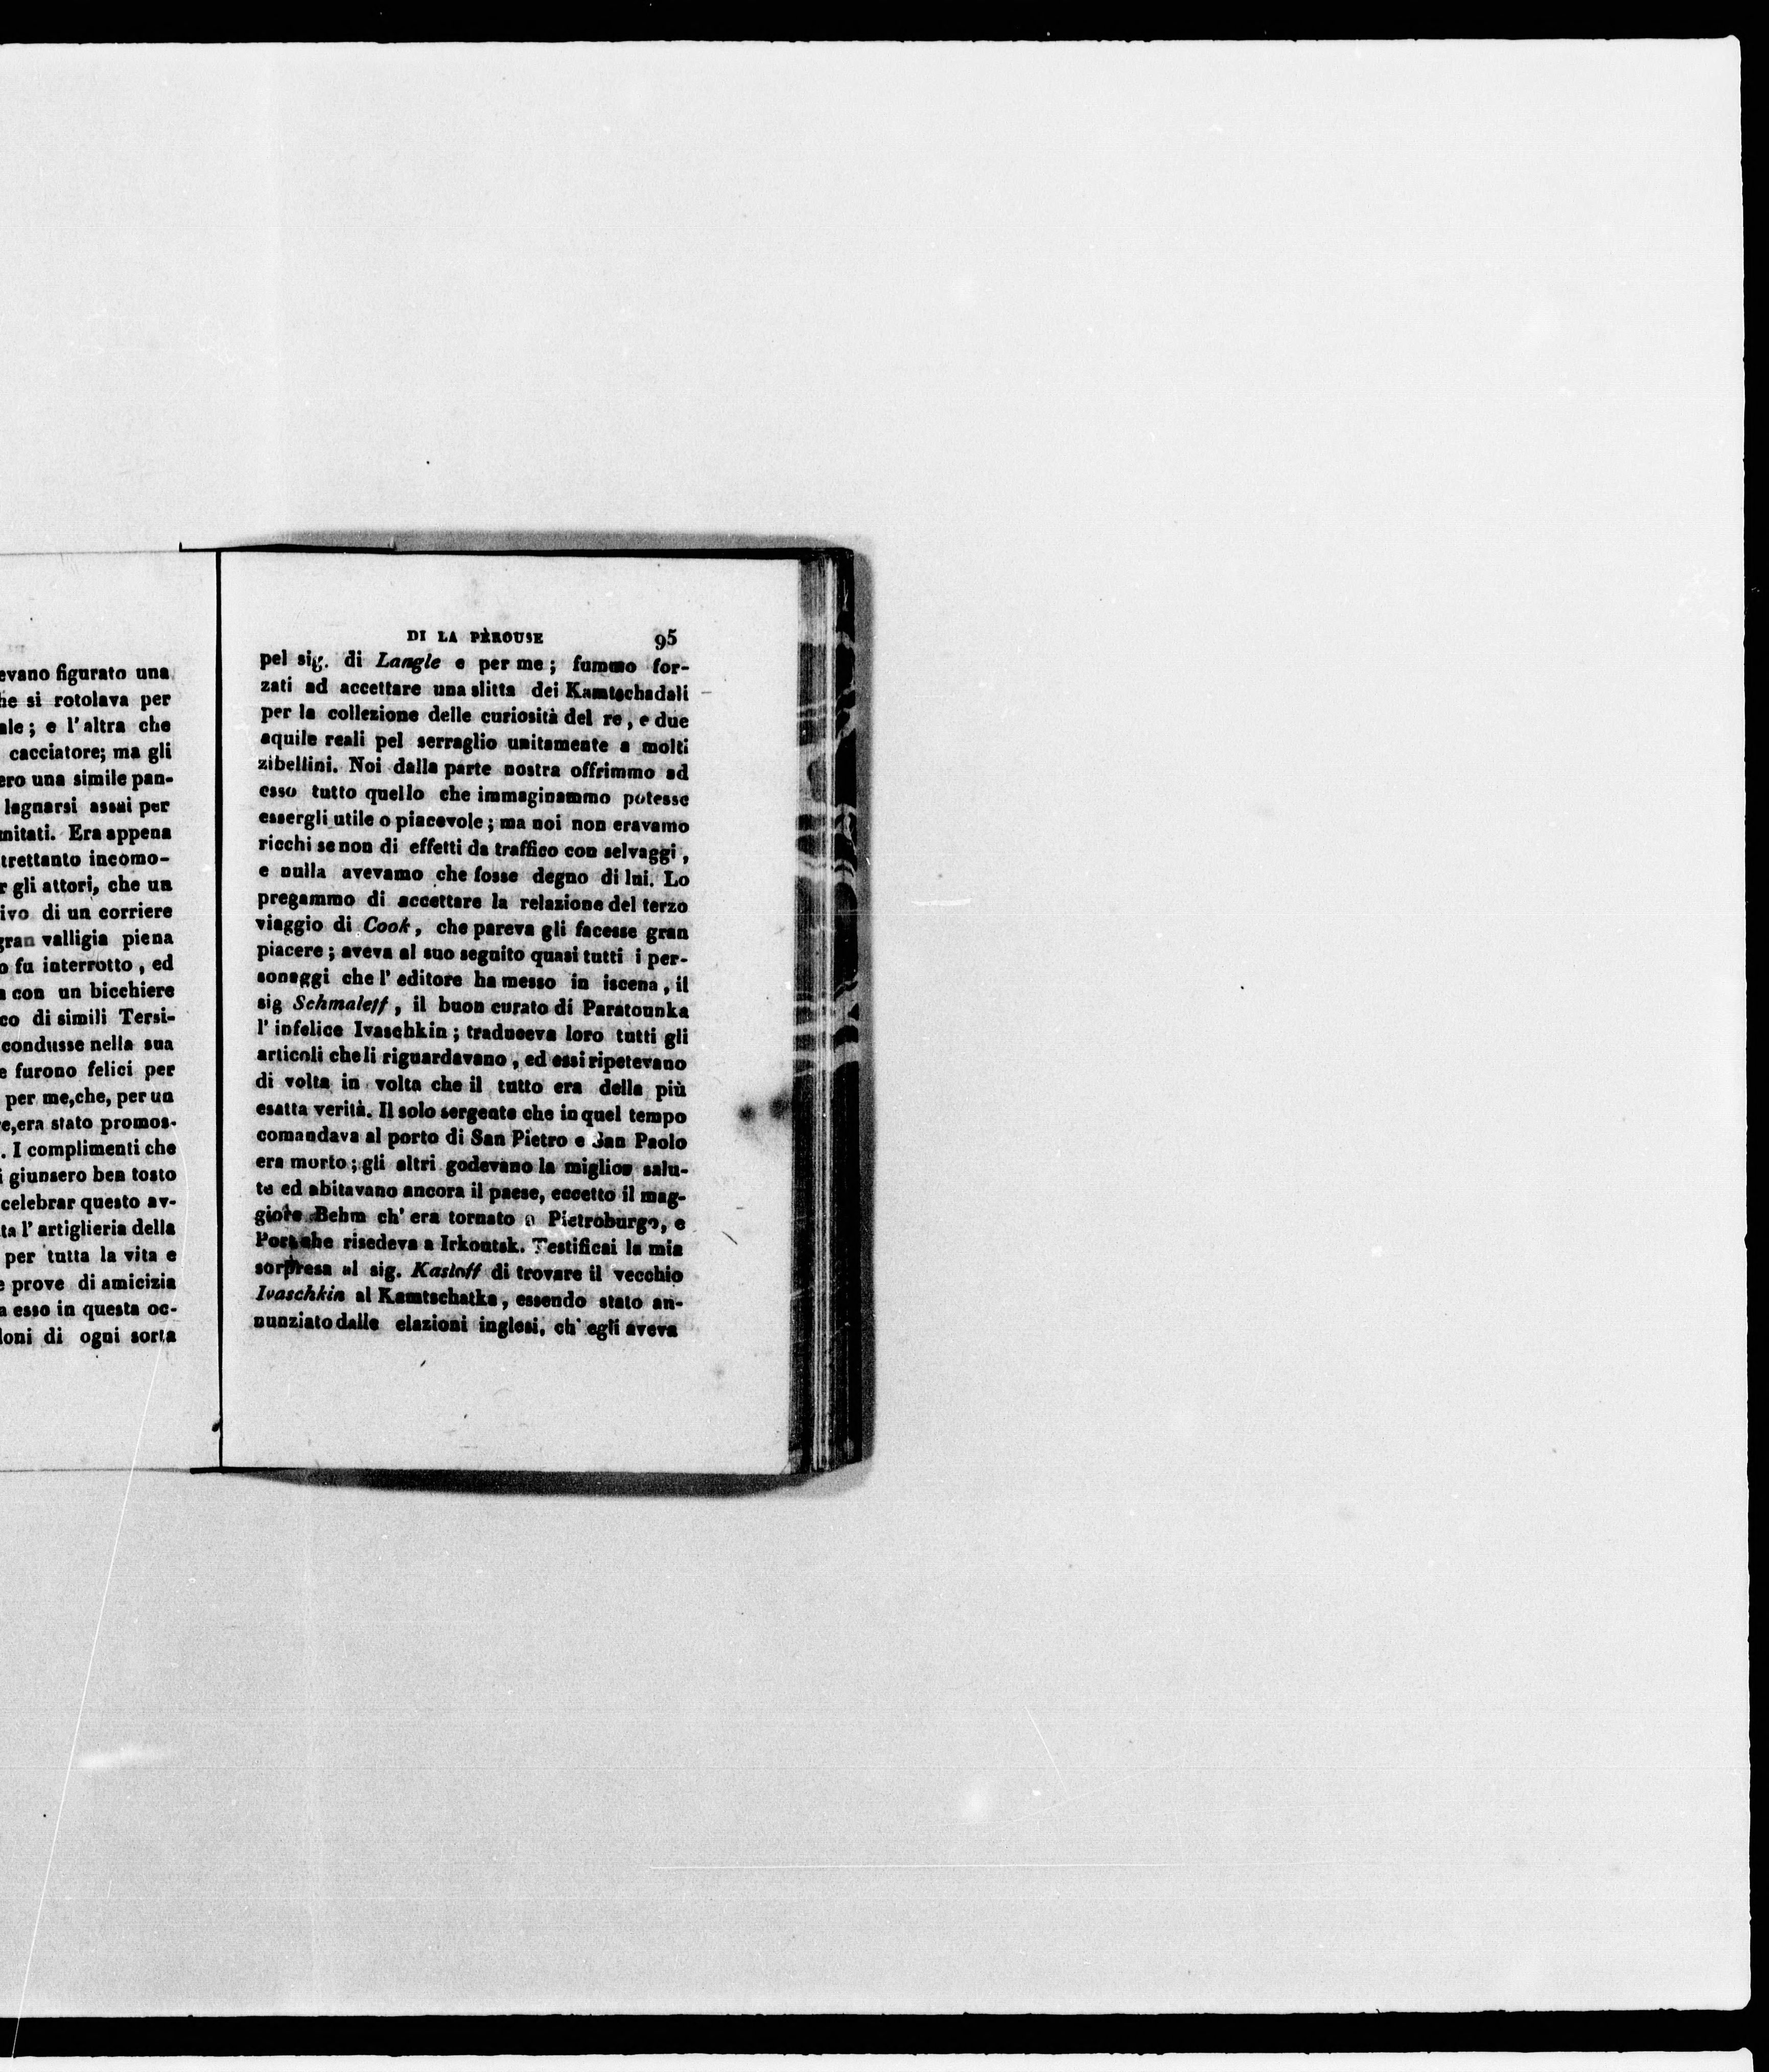 evano figurato una
he si rotolava per
ale; e l'altra che
cacciatore; ma gli
ero una simile pan-
lagnarsi assai per
mitati. Era appena
trettanto incomo-
r gli attori, che un
ivo di un corriere
gran valligia piena
o fu interrotto, ed
a con un bicchiere
co di simili Tersi-
condusse nella sua
e furono felici per
per me,che, per un
e,era stato promos-
. I complimenti che
i giunsero ben tosto
celebrar questo av-
ta l'artiglieria della
per tutta la vita e
e prove di amicizia
a esso in questa oc-
loni di ogni sorta
DI LA PÈROUSE 95
pel sig. di Langle e per me; fummo for-
zati ad accettare una slitta dei Kamtschadali
per la collezione delle curiosità del re, e due
aquile reali pel serraglio unitamente a molti
zibellini. Noi dalla parte nostra offrimmo ad
esso tutto quello che immaginammo potesse
essergli utile o piacevole; ma noi non eravamo
ricchi se non di effetti da traffico con selvaggi,
e nulla avevamo che fosse degno di lui. Lo
pregammo di accettare la relazione del terzo
viaggio di Cook, che pareva gli facesse gran
piacere; aveva al suo seguito quasi tutti i per-
sonaggi che l'editore ha messo in iscena, il
sig Schmaleff, il buon curato di Paratounka
l'infelice Ivaschkin; traduceva loro tutti gli
articoli che li riguardavano, ed essi ripetevano
di volta in volta che il tutto era della più
esatta verità. Il solo sergente che in quel tempo
comandava al porto di San Pietro e San Paolo
era morto; gli altri godevano la miglior salu-
te ed abitavano ancora il paese, eccetto il mag-
giore Behm ch'era tornato a Pietroburgo, e
risedeva a Irkoutsk. Testificai la mia
sorpresa al sig. Kasloff di trovare il vecchio
Ivaschkin al Kamtschatka, essendo stato an-
nunziato dalle elazioni inglesi, ch'egli aveva